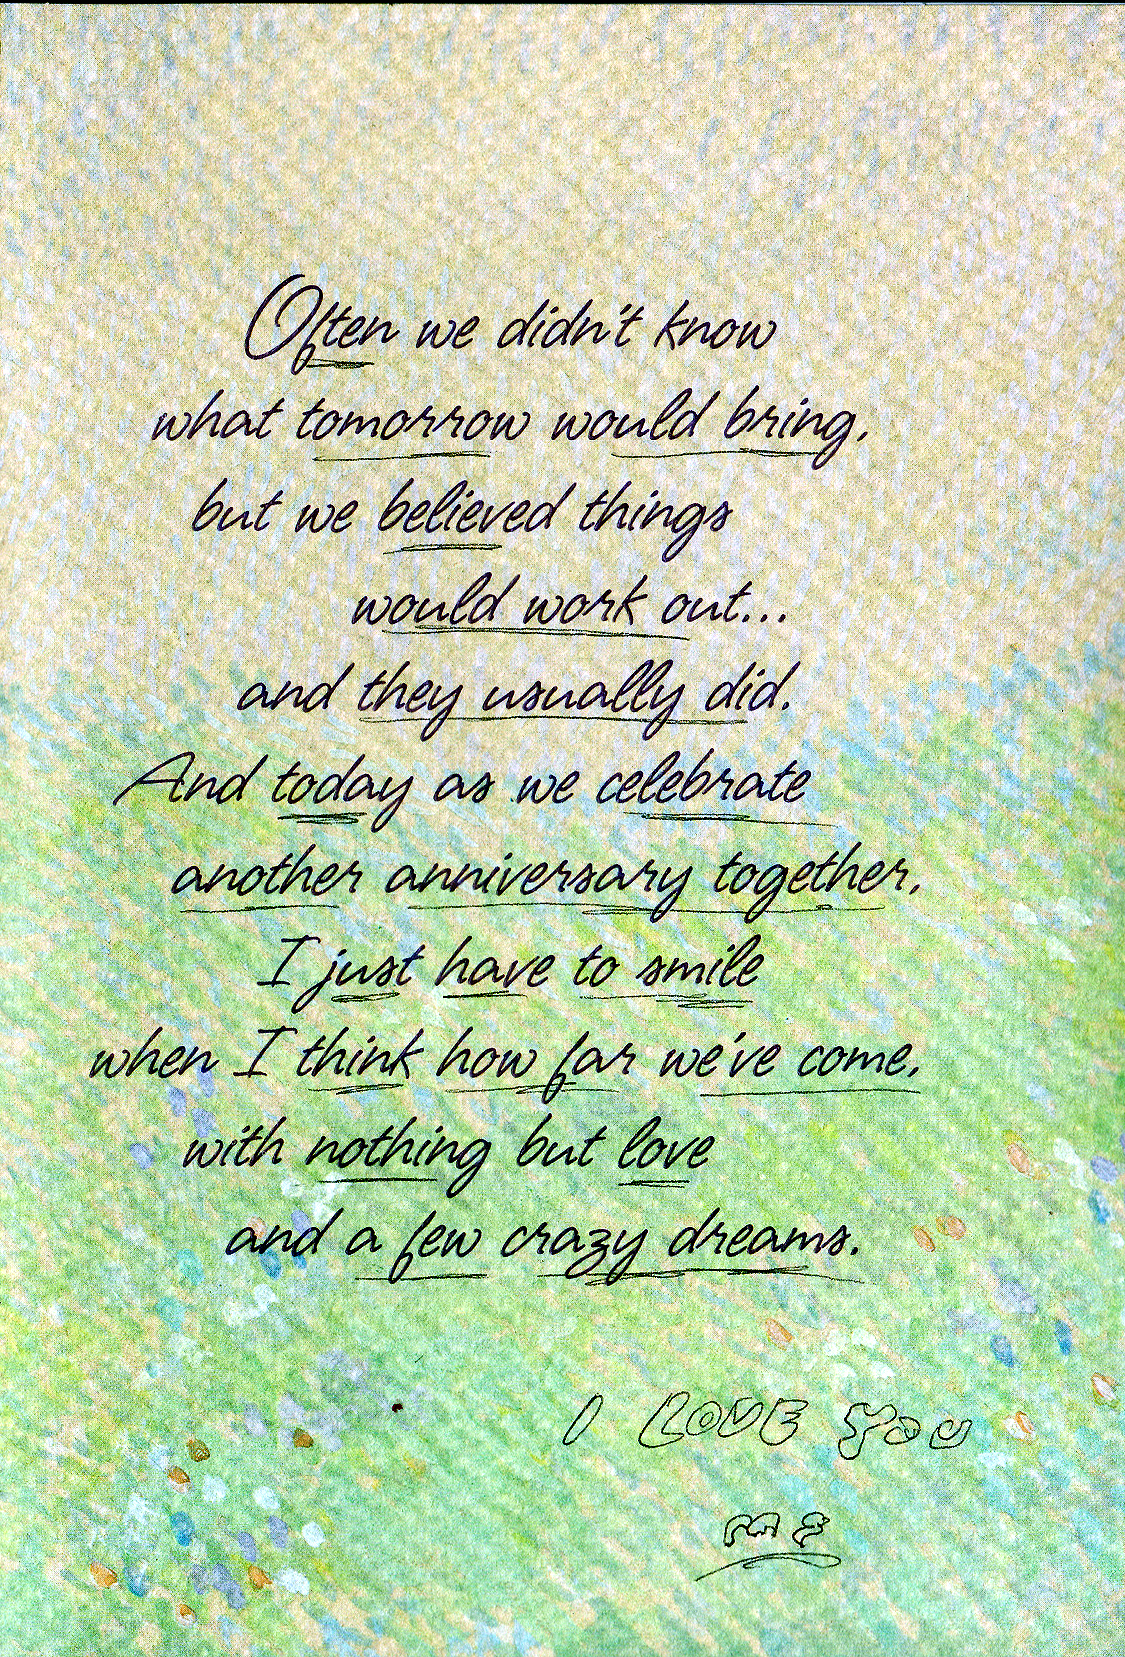 Often we didn't know
what tomorrow would bring,
but we believed things
would work out...
and they usually did.
And today as we celebrate
another anniversary together,
I just have to smile
when I think how far we've come,
with nothing but love
and a few crazy dreams.
I LOVE YOU
ME